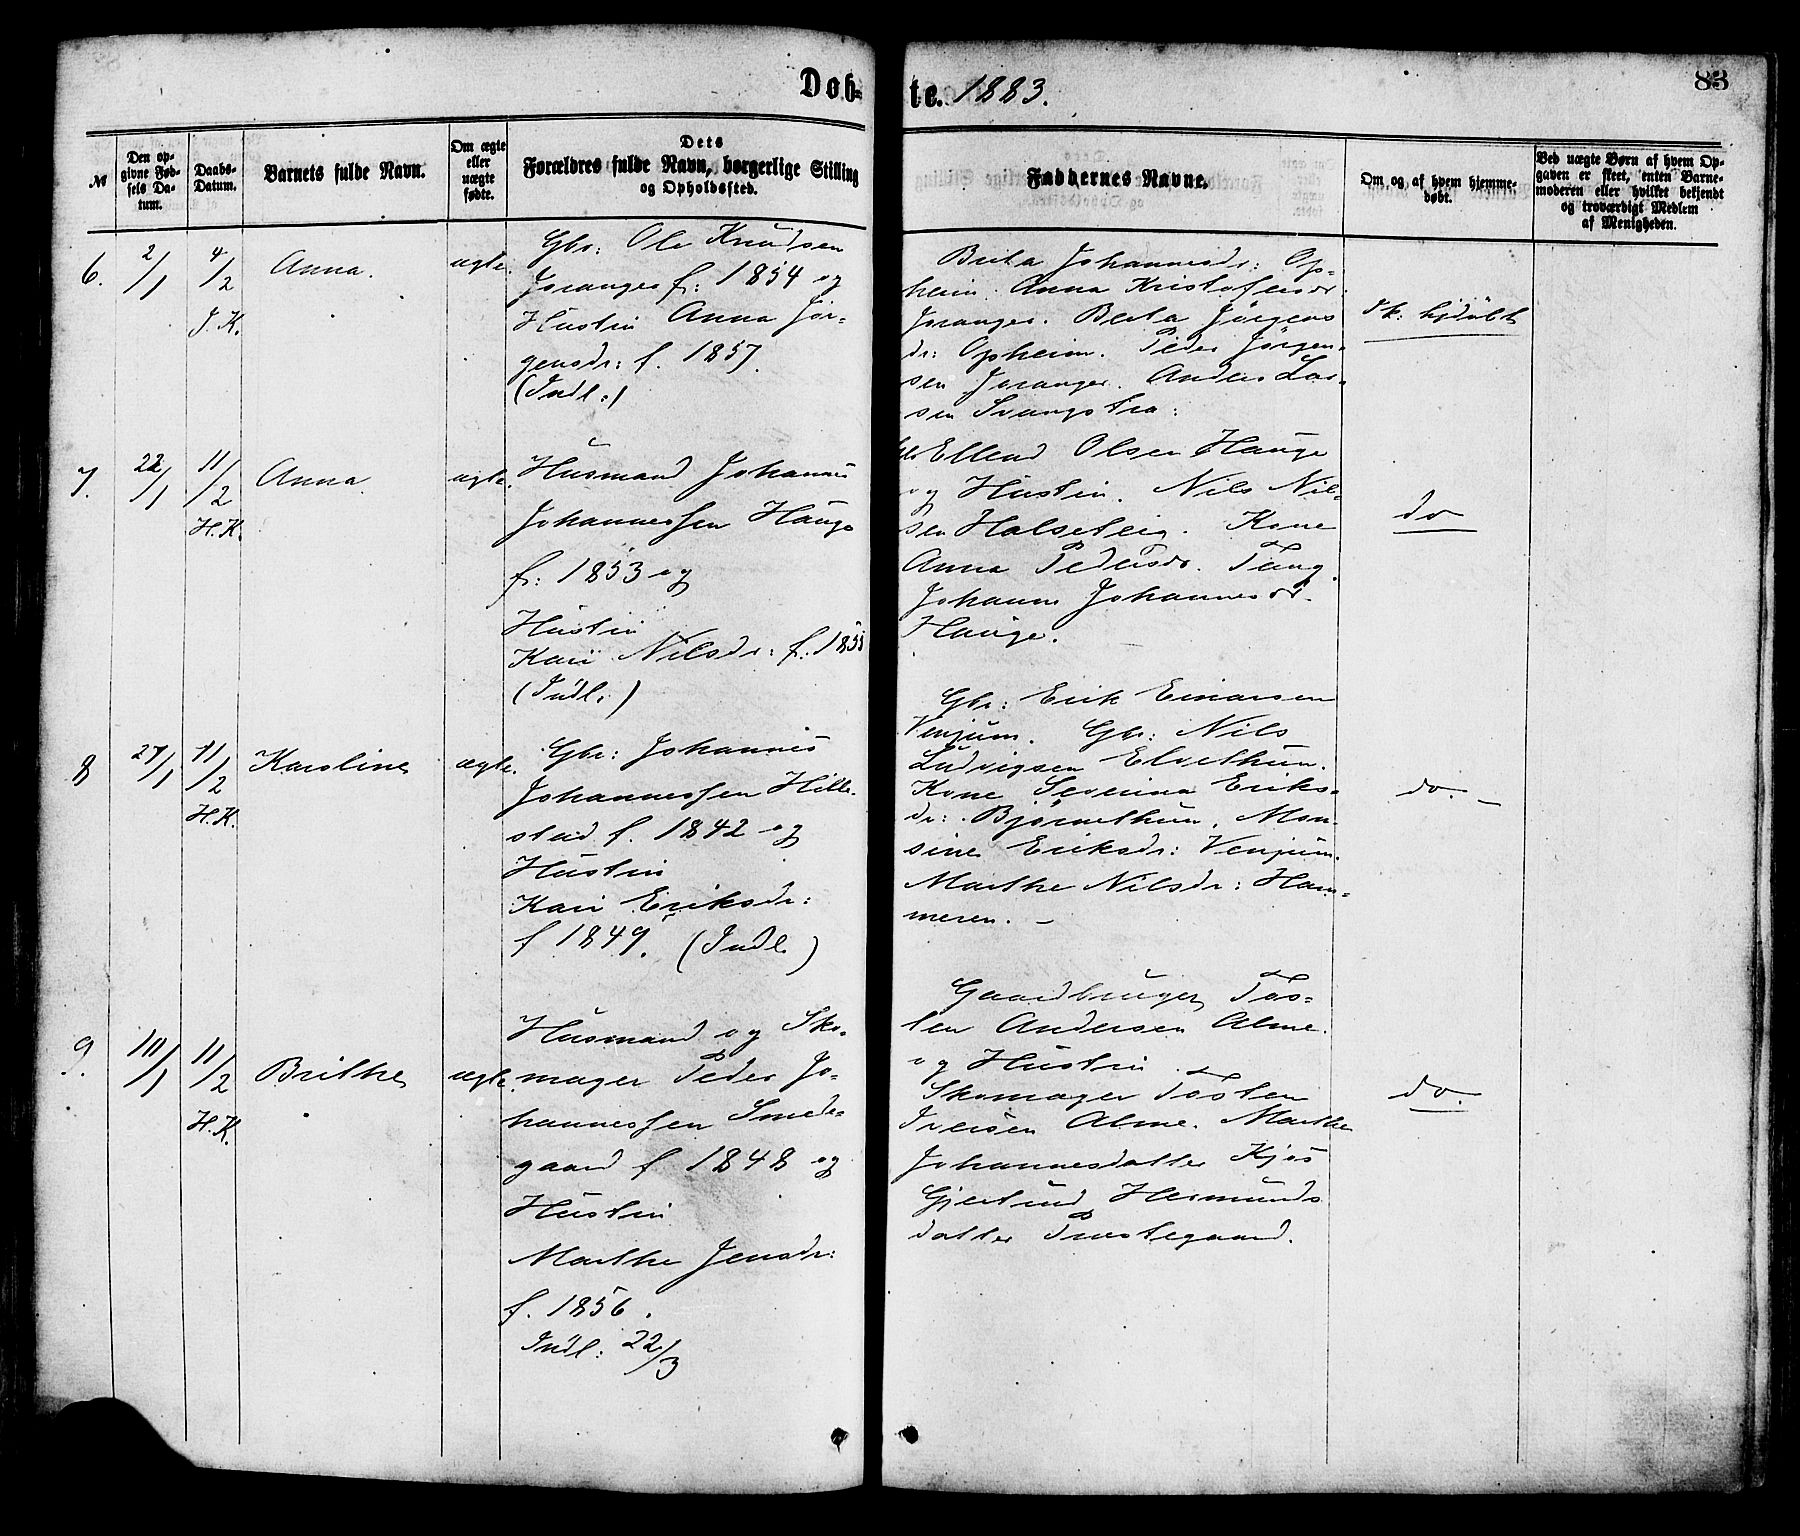 Døb-
te. 1883.
83
№
Den op-
givne Føb-
sels Da-
tum.
Daabs-
Datum.
Barnets fulde Navn.
Om ægte
eller
uægte
fødte.
Dets
Forældres fulde Navn, borgerlige Stilling
og Opholdssted.
Faddernes Navne.
Om og af hvem hjemme-
døbt.
Ved uægte Børn af hvem Op-
gaven er skeet, enten Barne-
moderen eller hvilket bekjendt
og troværdigt Medlem
af Menigheden.
6.
2/1
4/2
J. K.
Anna.
ægte.
Gbr: Ole Knudsen
Joranger f: 1854 og
Hustru Anna Jør-
gensdr: f. 1857.
(Indl:)
Brita Johannesdr: Op-
heim. Anna Kristofersdr
Joranger. Berta Jørgens
dr: Opheim. Peder Jørgen-
sen Joranger. Anders Lar-
sen
Ik: hjdøbt
7.
22/1
11/2
H. K.
Anna
ægte.
Husmand Johannes
Johannessen Hauge
f: 1853 og
Hustru
Kari Nilsdr: f: 1855
(Indl:)
Ellend Olsen Hauge
og Hustru. Nils Nil-
sen Halseteig. Kone
Anna Pedersdr. Teng.
Johanne Johannesdr.
Hauge.
do
8
27/1
11/2
H. K.
Karoline
ægte.
Gbr: Johannes
Johannessen Hille-
stad f. 1842 og
Hustru
Kari Eriksdr:
f 1849. (Indl.)
Gbr: Erik Einarsen
Venjum. Gbr: Nils
Ludvigsen Elvethun.
Kone Severina Eriks-
dr: Bjørnethun. Mon-
sine Eriksdr: Venjum.
Marthe Nilsdr: Ham-
meren. –
do. –
9.
10/1
11/2
H. K.
Brithe
ægte.
Husmand og Sko-
mager Peder Jo-
hannessen Smede-
gaard f 1848 og
Hustru
Marthe Jensdr:
f. 1856.
Indl: 22/3
Gaardbruger Tos-
ten Andersen Alme.
og Hustru
Skomager Tosten
Iversen Alme. Marthe
Johannesdatter Kjos
Gjertrud Hermunds
datter Prestegaard.
do.